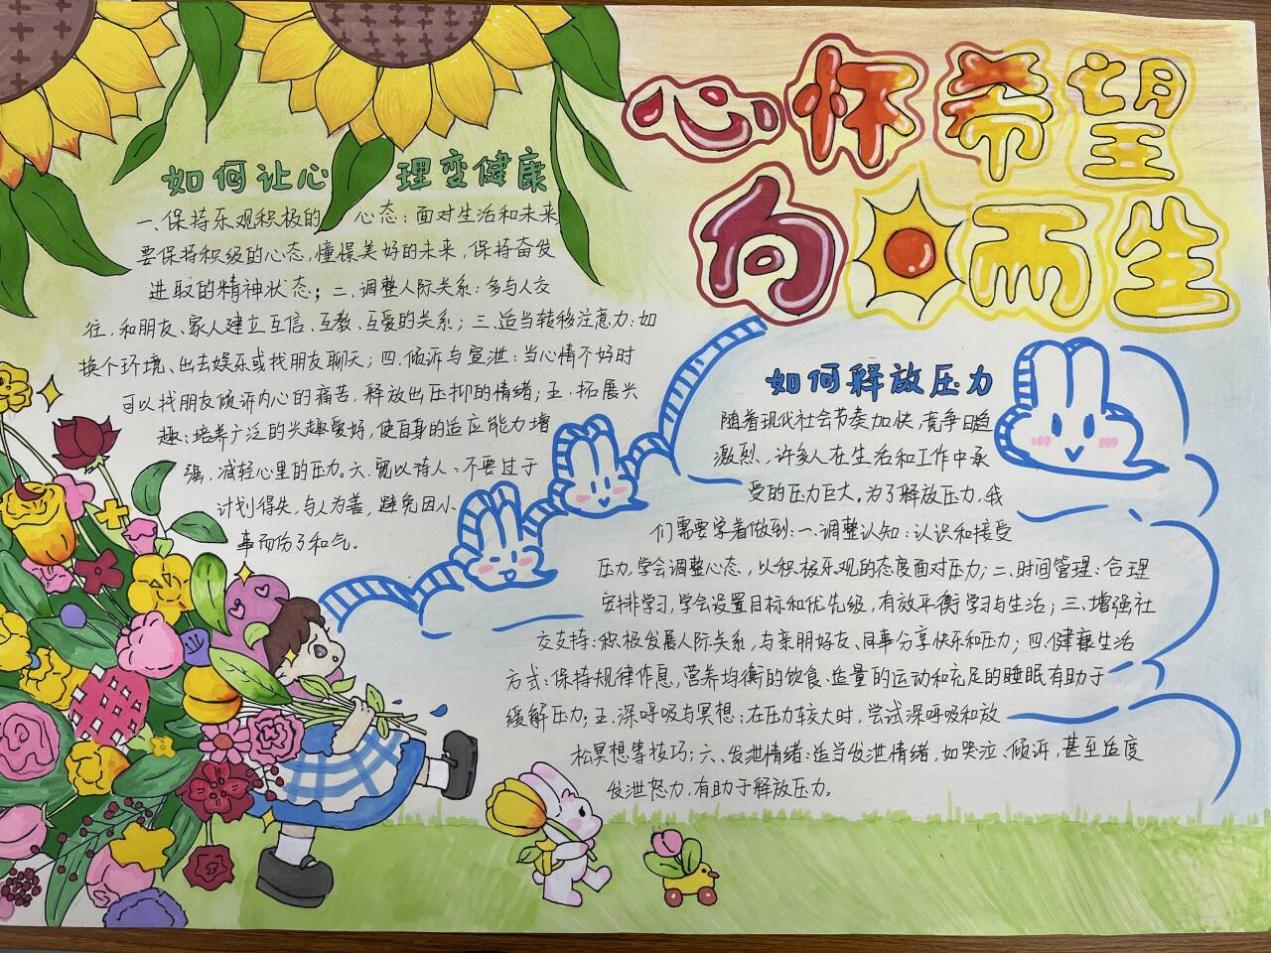 心怀希望
向而生
如何让心理变健康
一、保持乐观积极的心态：面对生活和未来
要保持积级的心态，憧憬美好的未来，保持奋发
进取的精神状态；二、调整人际关系：多与人交
往，和朋友、家人建立互信、互敬、互爱的关系；三、适当转移注意力：如
换个环境、出去娱乐或找朋友聊天；四、倾诉与宣泄：当心情不好时
可以找朋友倾诉内心的痛苦，释放出压抑的情绪；五、拓展兴
趣：培养广泛的兴趣爱好，使自身的适应能力增
强，减轻心里的压力。六、宽以待人、不要过于
计划得失，与人为善，避免因小
事而伤了和气。
如何释放压力
随着现代社会节奏加快，竞争日趋
激烈，许多人在生活和工作中承
受的压力巨大。为了释放压力，我
们需要学着做到：一、调整认知：认识和接受
压力，学会调整心态，以积极乐观的态度面对压力；二、时间管理：合理
安排学习，学会设置目标和优先级，有效平衡学习与生活；三、增强社
交支持：积极发展人际关系，与亲朋好友、同事分享快乐和压力；四、健康生活
方式：保持规律作息，营养均衡的饮食、适量的运动和充足的睡眠有助于
缓解压力；五、深呼吸与冥想：在压力较大时，尝试深呼吸和放
松冥想等技巧；六、发泄情绪：适当发泄情绪，如哭泣、倾诉，甚至适度
发泄怒力，有助于释放压力。